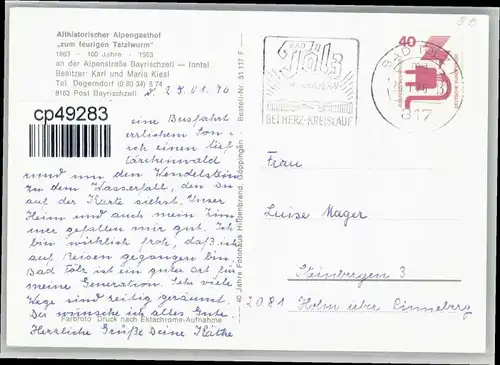 Althistorischer Alpengasthof
"zum feurigen Tatzlwurm"
1863 - 100 Jahre - 1963
an der Alpenstraße Bayrischzell — Inntal
Besitzer: Karl und Maria Kiesl
Tel. Degerndorf (0 80 34) 8 74
8163 Post Bayrischzell
d. 25.01.76
cp49283
eine Busfahrt
herrlichem Son-
ch einen tief
Lärchenwald
rund um den Wendelstein
zu dem Wasserfall, den Du
auf der Karte siehst. Unser
Heim und auch mein Zim
mer gefallen mir gut. Ich
bin wirklich froh, daß ich
auf Reisen gegangen bin.
Bad Tölz ist ein guter Ort für
meine Generation. Sehr viele
Wege sind
geräumt.
Der wünsche ich alles Gute.
Herzliche Grüße Deine Käthe
Farbfoto: Druck nach Ektachrome-Aufnahme
40 Jahre Fotohaus Hildenbrand, Göppingen Bestell-Nr. 51 117 F
BAD
Tölz
BEI HERZ-KREISLAUF
BAD TÖLZ
817
40
Frau
Luise Mager
Steinbergen 3
2081 Holm über Pinneberg